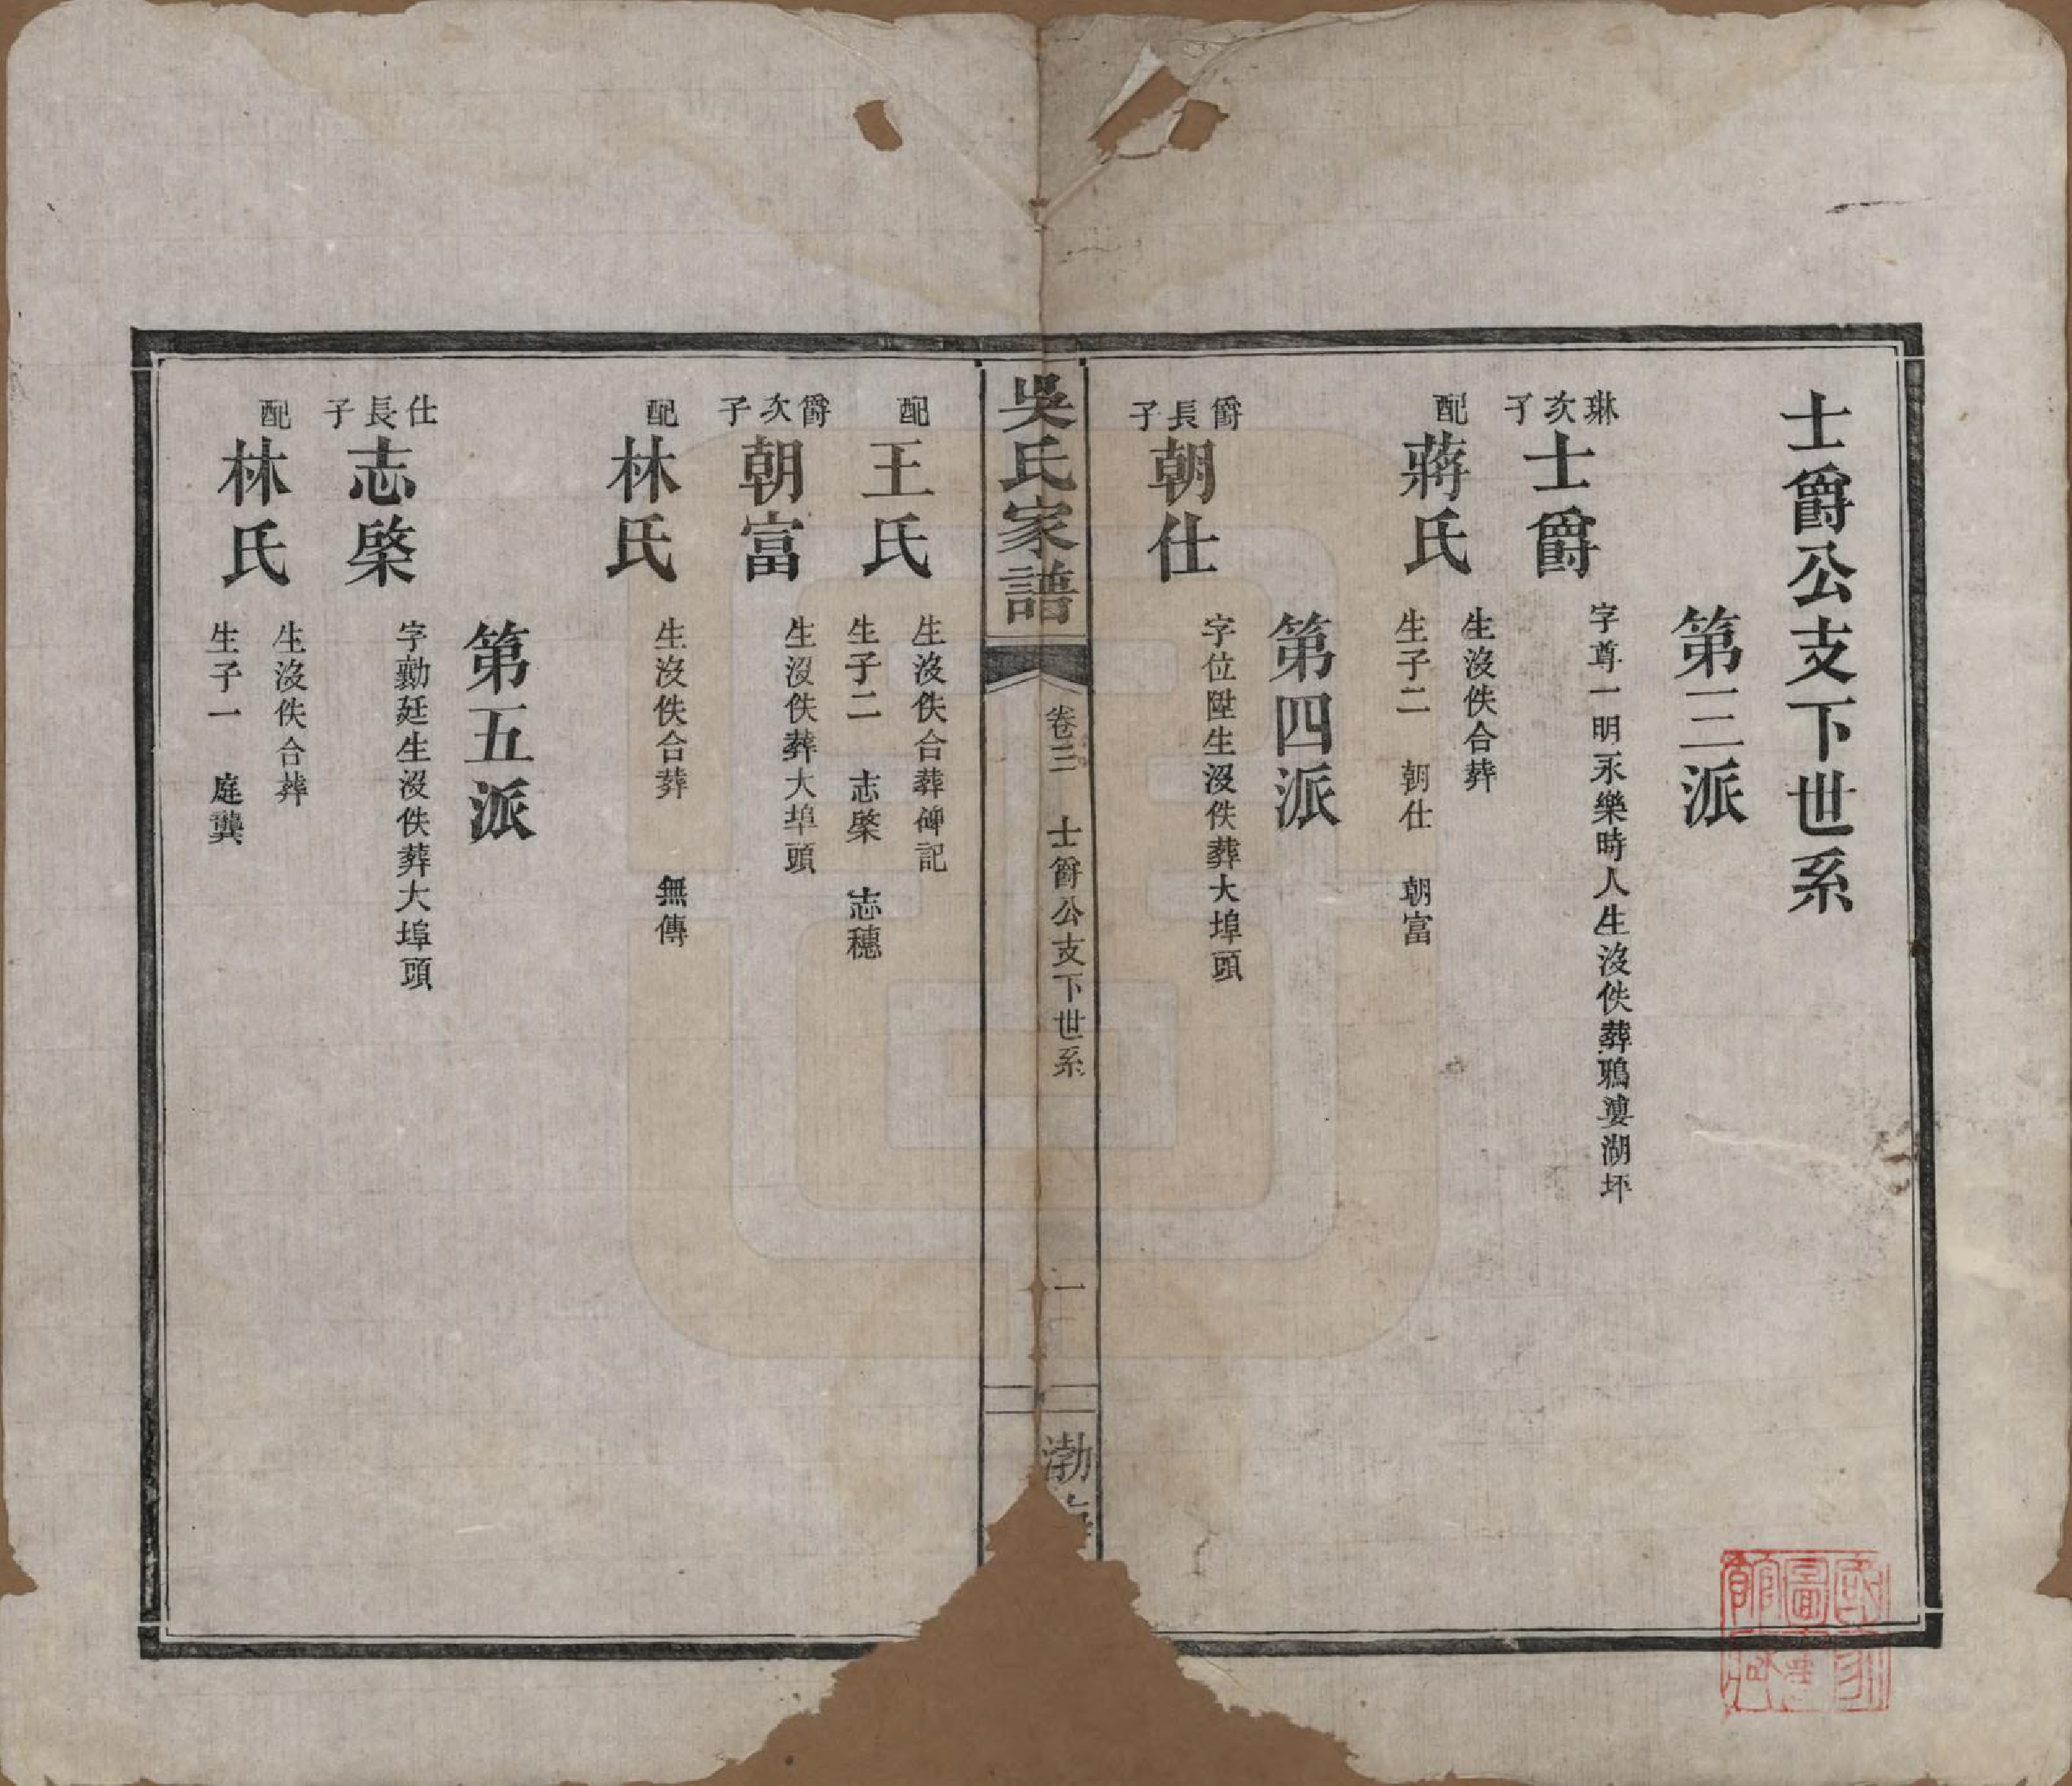 士爵公支下世系
第三派
琳次子
士爵
字尊一明永樂時人生沒佚葬鴉婆湖坪
配
蔣氏
生沒佚合葬
生子二　朝仕　朝富
第四派
爵長子
朝仕
字位陞生沒佚葬大埠頭
吳氏家譜
卷三　士爵公支下世系
一
渤
配
王氏
生沒佚合葬碑記
生子二　志棨　志穗
爵次子
朝富
生沒佚葬大埠頭
配
林氏
生沒佚合葬　無傳
第五派
仕長子
志棨
字勷廷生沒佚葬大埠頭
配
林氏
生沒佚合葬
生子一　庭龔